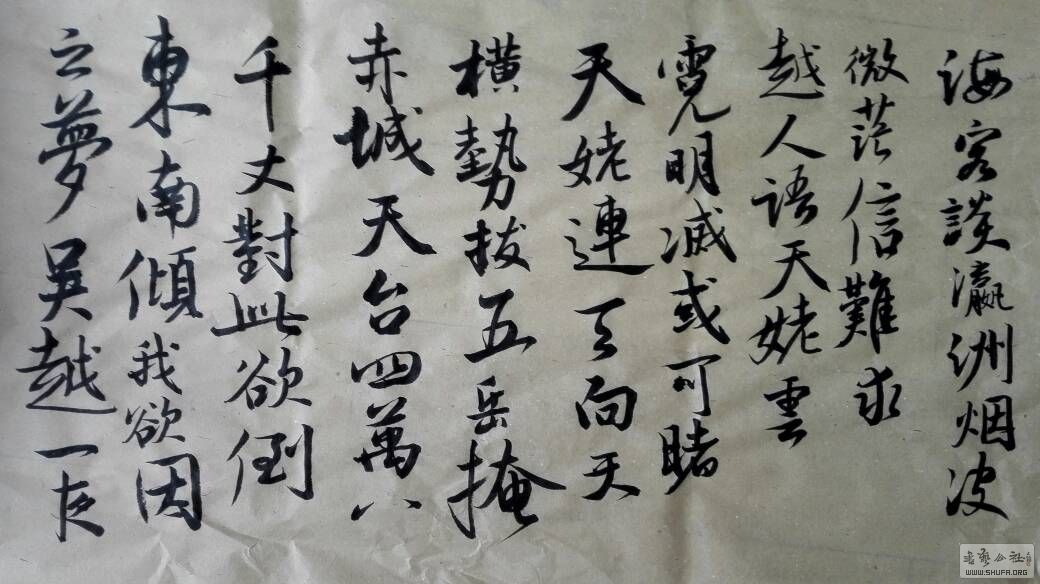 海客談瀛洲烟波
微茫信難求
越人語天姥雲
霓明滅或可睹
天姥連天向天
橫勢拔五岳掩
赤城天台四萬八
千丈對此欲倒
東南傾我欲因
之夢吳越一夜
WWW.SHUFA.ORG